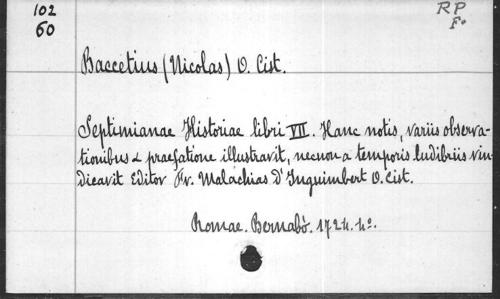 102
60
RP
Fº
Baccetius (Nicolas) O. Cist.
Septimianae Historiae libri VII. Hanc notis, variis observa-
tionibus & praefatione illustravit, necnon a temporis ludibriis vin
dicavit Editor Fr. Malachias D'Inguimbert O. Cist.
Romae. Bernabò. 1724. 4º.